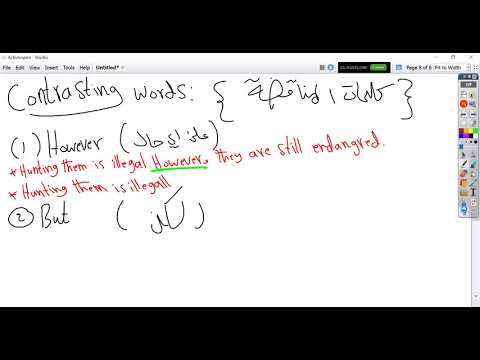 ActivInspire - Studio
File Edit View Insert Tools Help Untitled* CLASSFLOW Page 8 of 8 Fit to Width
Contrasting words: { كلمات }
(1) However (على أي حال)
* Hunting them is illegal. However, they are still endangred.
* Hunting them is illegall
2 But (لكن)